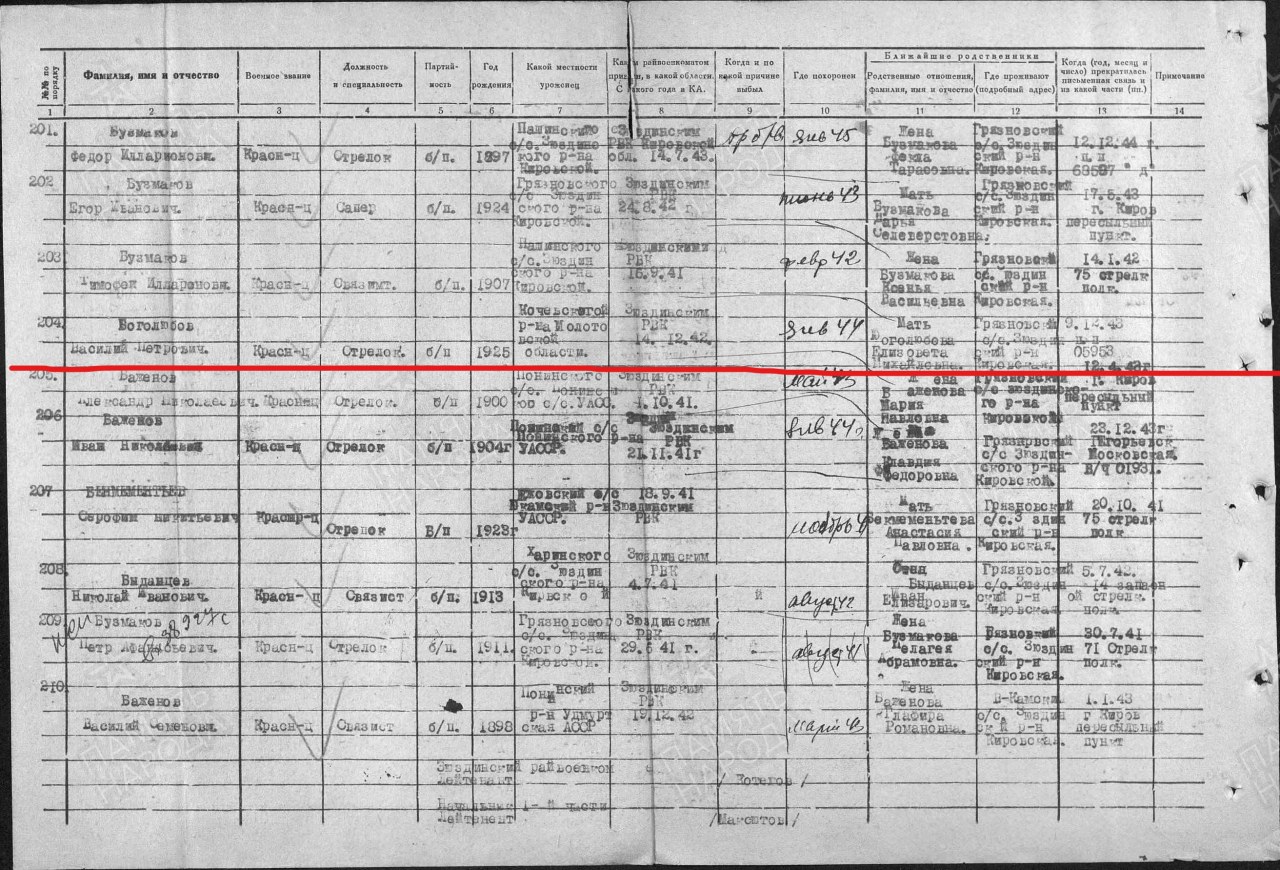 №№ по порядку
Фамилия, имя и отчество
Военное звание
Должность и специальность
Партий-
ность
Год
рождения
Какой местности
уроженец
Каким райвоенкоматом
призван, в какой области.
С какого года в КА.
Когда и по
какой причине
выбыл
Где похоронен
Ближайшие родственники
Родственные отношения,
фамилия, имя и отчество
Где проживают
(подробный адрес)
Когда (год, месяц и
число) прекратилась
письменная связь и
из какой части (пп.)
Примечания
1 2 3 4 5 6 7 8 9 10 11 12 13 14
201.
Бузмаков
Федор Илларионови.
Красн-ц
Стрелок
б/п.
1897
Пашинского
с/с. Зюздин
ского р-на
Кировской.
Зюздинским
РВК Кировской
обл. 14.7.43.
пр б/в
янв 45
Жена
Бузмакова
Фекла
Тарасовна.
Грязновский
с/с. Зюздин
ский р-н
Кировская.
12.12.44 г.
п.п
"д"
202
Бузмаков
Егор Иванович.
Красн-ц
Сапер
б/п.
1924
Грязновского
с/с Зюздин
ского р-на
Кировской.
Зюздинским
РВК
24.8.42 г
июнь 43
Мать
Бузмакова
Дарья
Селеверстовна;
Грязновский
с/с. Зюздин
ский р-н
Кировская.
17.5.43
г. Киров
пересыльный
пункт.
203
Бузмаков
Тимофей Илларонови.
Красн-ц
Связимт.
б/п.
1907
Пашинского
с/с. Зюздин
ского р-на
Кировской.
Зюздинским
РВК
16.9.41
февр 42
Жена
Бузмакова
Ксенья
Васильевна
Грязновский
с/с. Зюздин
ский р-н
Кировская.
14.1.42
75 стрелк
полк.
204.
Боголюбов
Василий Петрович.
Красн-ц
Стрелок.
б/п
1925
Кочевсксгой
р-на Молото
вской
области.
Зюздинским
РВК
14. 12.42.
янв 44
Мать
Боголюбова
Елизовета
Михайловна.
Грязновский
с/с. Зюздин
ский р-н
Кировская.
9.12.43
п.п
05953
205.
Баженов
Александр Николаевич.
Краснец
Стрелок.
б/п
1900
Понинского
с/с. Понинс
ко с/с.УАСС.
Зюздинским
РВК
4.10.41.
май 43
Жена
Баженова
Мария
Павловна
Грязновский
с/с Зюздинско
го р-на
Кировской
12.4.43г
г. Киров
пересыльный
пункт
206
Баженов
Иван
Красн-ц
Стрелок
б/п
1904г
Понинский с/с
Понинского р-на
УАССР.
Зюздинским
РВК
21.11.41г
янв 44 г.
Жена
Баженова
Клавдия
Федоровна
Грязновский
с/с Зюздин-
ского р-на
Кировской.
23.12.43г
Гигорьевск
Московская.
В/ч 01931.
207
БЕКМЕМЕНТЬЕВ
Серофим Никитьевич
Краснр-ц
Стрелок
В/п
1923г
Ежовский с/с
Юкамский р-н
УАССР.
18.9.41
Зюздинским
РВК
ноябрь 41
Мать
Векмеменьтева
Анастасия
Павловна.
Грязновский
с/с.З здин
ский р-н
Кировская.
20.10. 41
75 стрелк
полк
208.
Выданцев
Николай Иванович.
Красн-ц
Связист
б/п.
1913
Харинского
с/с. Зюздин
ского р-на
Кирвско й
Зюздинским
РВК
4.7.41
й
август 42
Отец
Выданцев
Иван
Елизарович.
Грязновский
с/с. Зюздин
ский р-н
Кировская.
5.7.42.
14 запасн
ой стрелк.
полк.
209.
Бузмаков
Петр Афанасьевич.
Красн-ц
Стрелок
б/п
1911.
Грязновского
с/с. Зюздин
ского р-на
Кировской.
Зюздинским
РВК
29.6 41 г.
август 41
Жена
Бузмакова
Пелагея
Абрамовна.
Вязновкий
с/с. Зюздин
ский р-н
Кировская.
30.7.41
71 Стрелк
полк.
210.
Баженов
Василий Семенови.
Красн-ц
Связист
б/п.
1898
Понинский
р-н Удмурт
ская АССР
Зюздинским
РВК
19.12.42
март 43
Жена
Баженова
Глафира
Романовна.
В-Камски
с/с. Зюздин
ский р-н
Кировская.
1.1.43
г Киров
пересыльный
пункт
Зюздинский райвоенком
Лейтенант
/ Котегов /
Начальник 1-й части
Лейтенент
/Макоштов /